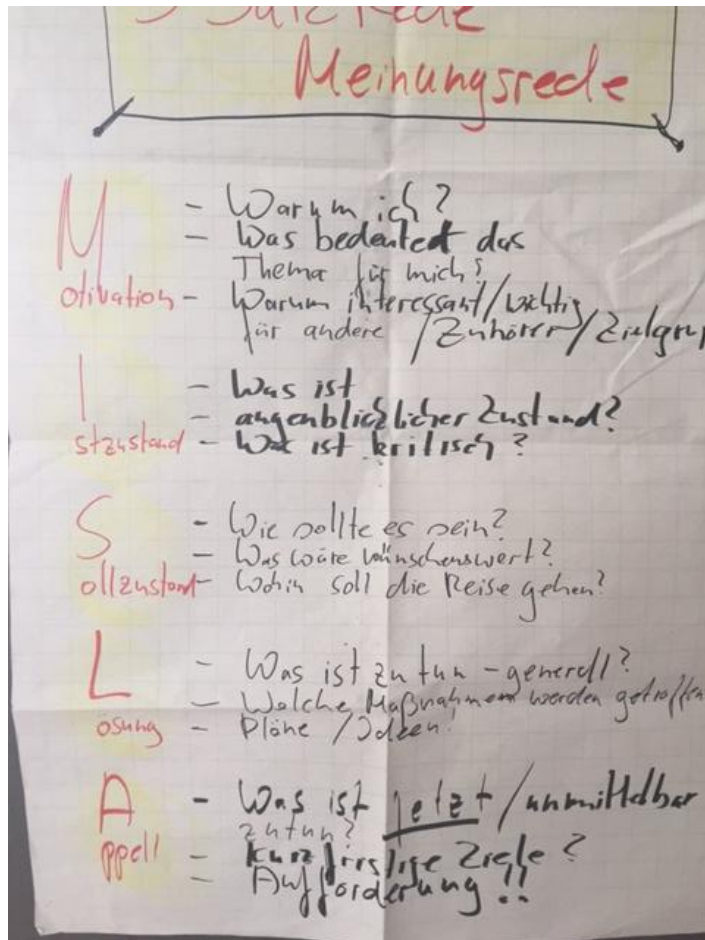 Meinungsrede
Motivation
- Warum ich?
- Was bedeutet das
Thema für mich?
- Warum interessant/wichtig
für andere/Zuhörer/Zielgru
Istzustand
- Was ist
- augenblicklicher Zustand?
- Was ist kritisch?
Sollzustand
- Wie sollte es sein?
- Was wäre wünschenswert?
- Wohin soll die Reise gehen?
Lösung
- Was ist zu tun - generell?
- Welche Maßnahmen werden getroffen
- Pläne/Ideen!
Appell
- Was ist jetzt/unmittelbar
zu tun?
- kurzfristige Ziele?
- Aufforderung!!